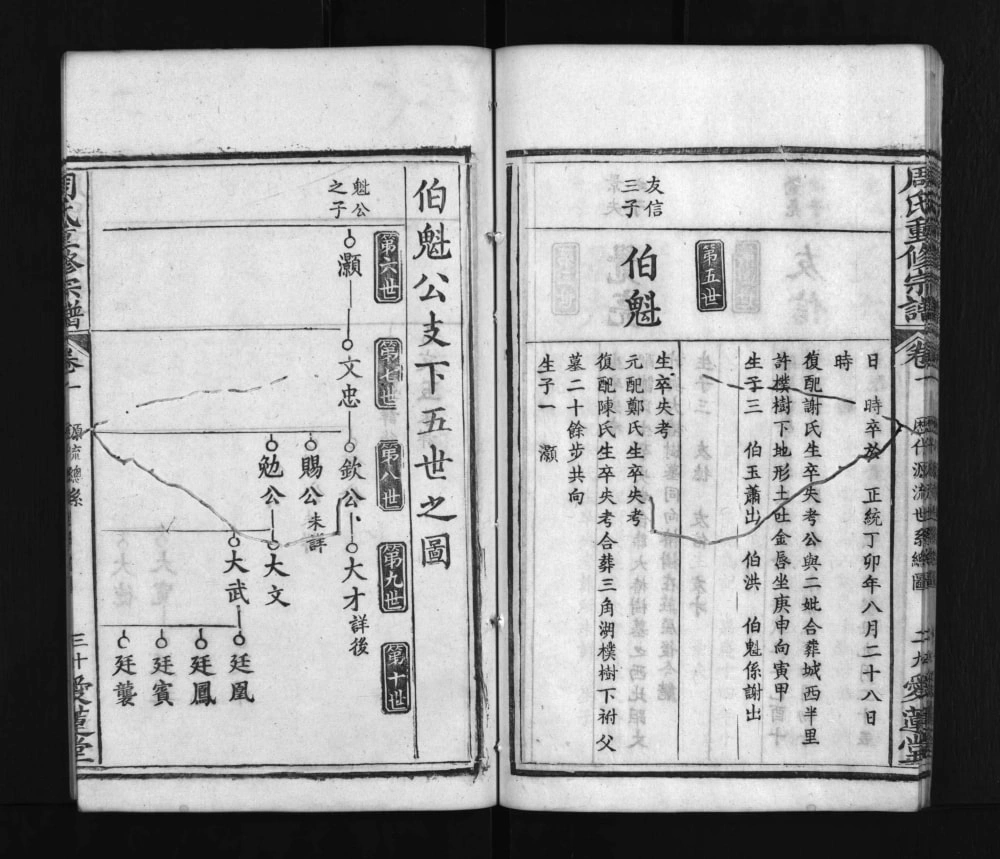 周氏重修宗譜
卷一
歷代源流世系總圖
二九
愛蓮堂
日 時卒於 正統丁卯年八月二十八日
時
復配謝氏生卒失考公與二妣合葬城西半里
許樸樹下地形土吐金唇坐庚申向寅甲
生子三 伯玉蕭出 伯洪 伯魁係謝出
第五世
友信
三子
伯魁
生卒失考
元配鄭氏生卒失考
復配陳氏生卒失考合葬三角湖樸樹下祔父
墓二十餘步共向
生子一 灝
伯魁公支下五世之圖
第六世
第七世
第八世
第九世
第十世
魁公
之子
灝
文忠
欽公
大才
詳後
賜公
未詳
勉公
大文
大武
廷鳳
廷賓
廷襲
周氏重修宗譜
卷一
源流總系
三十
愛蓮堂